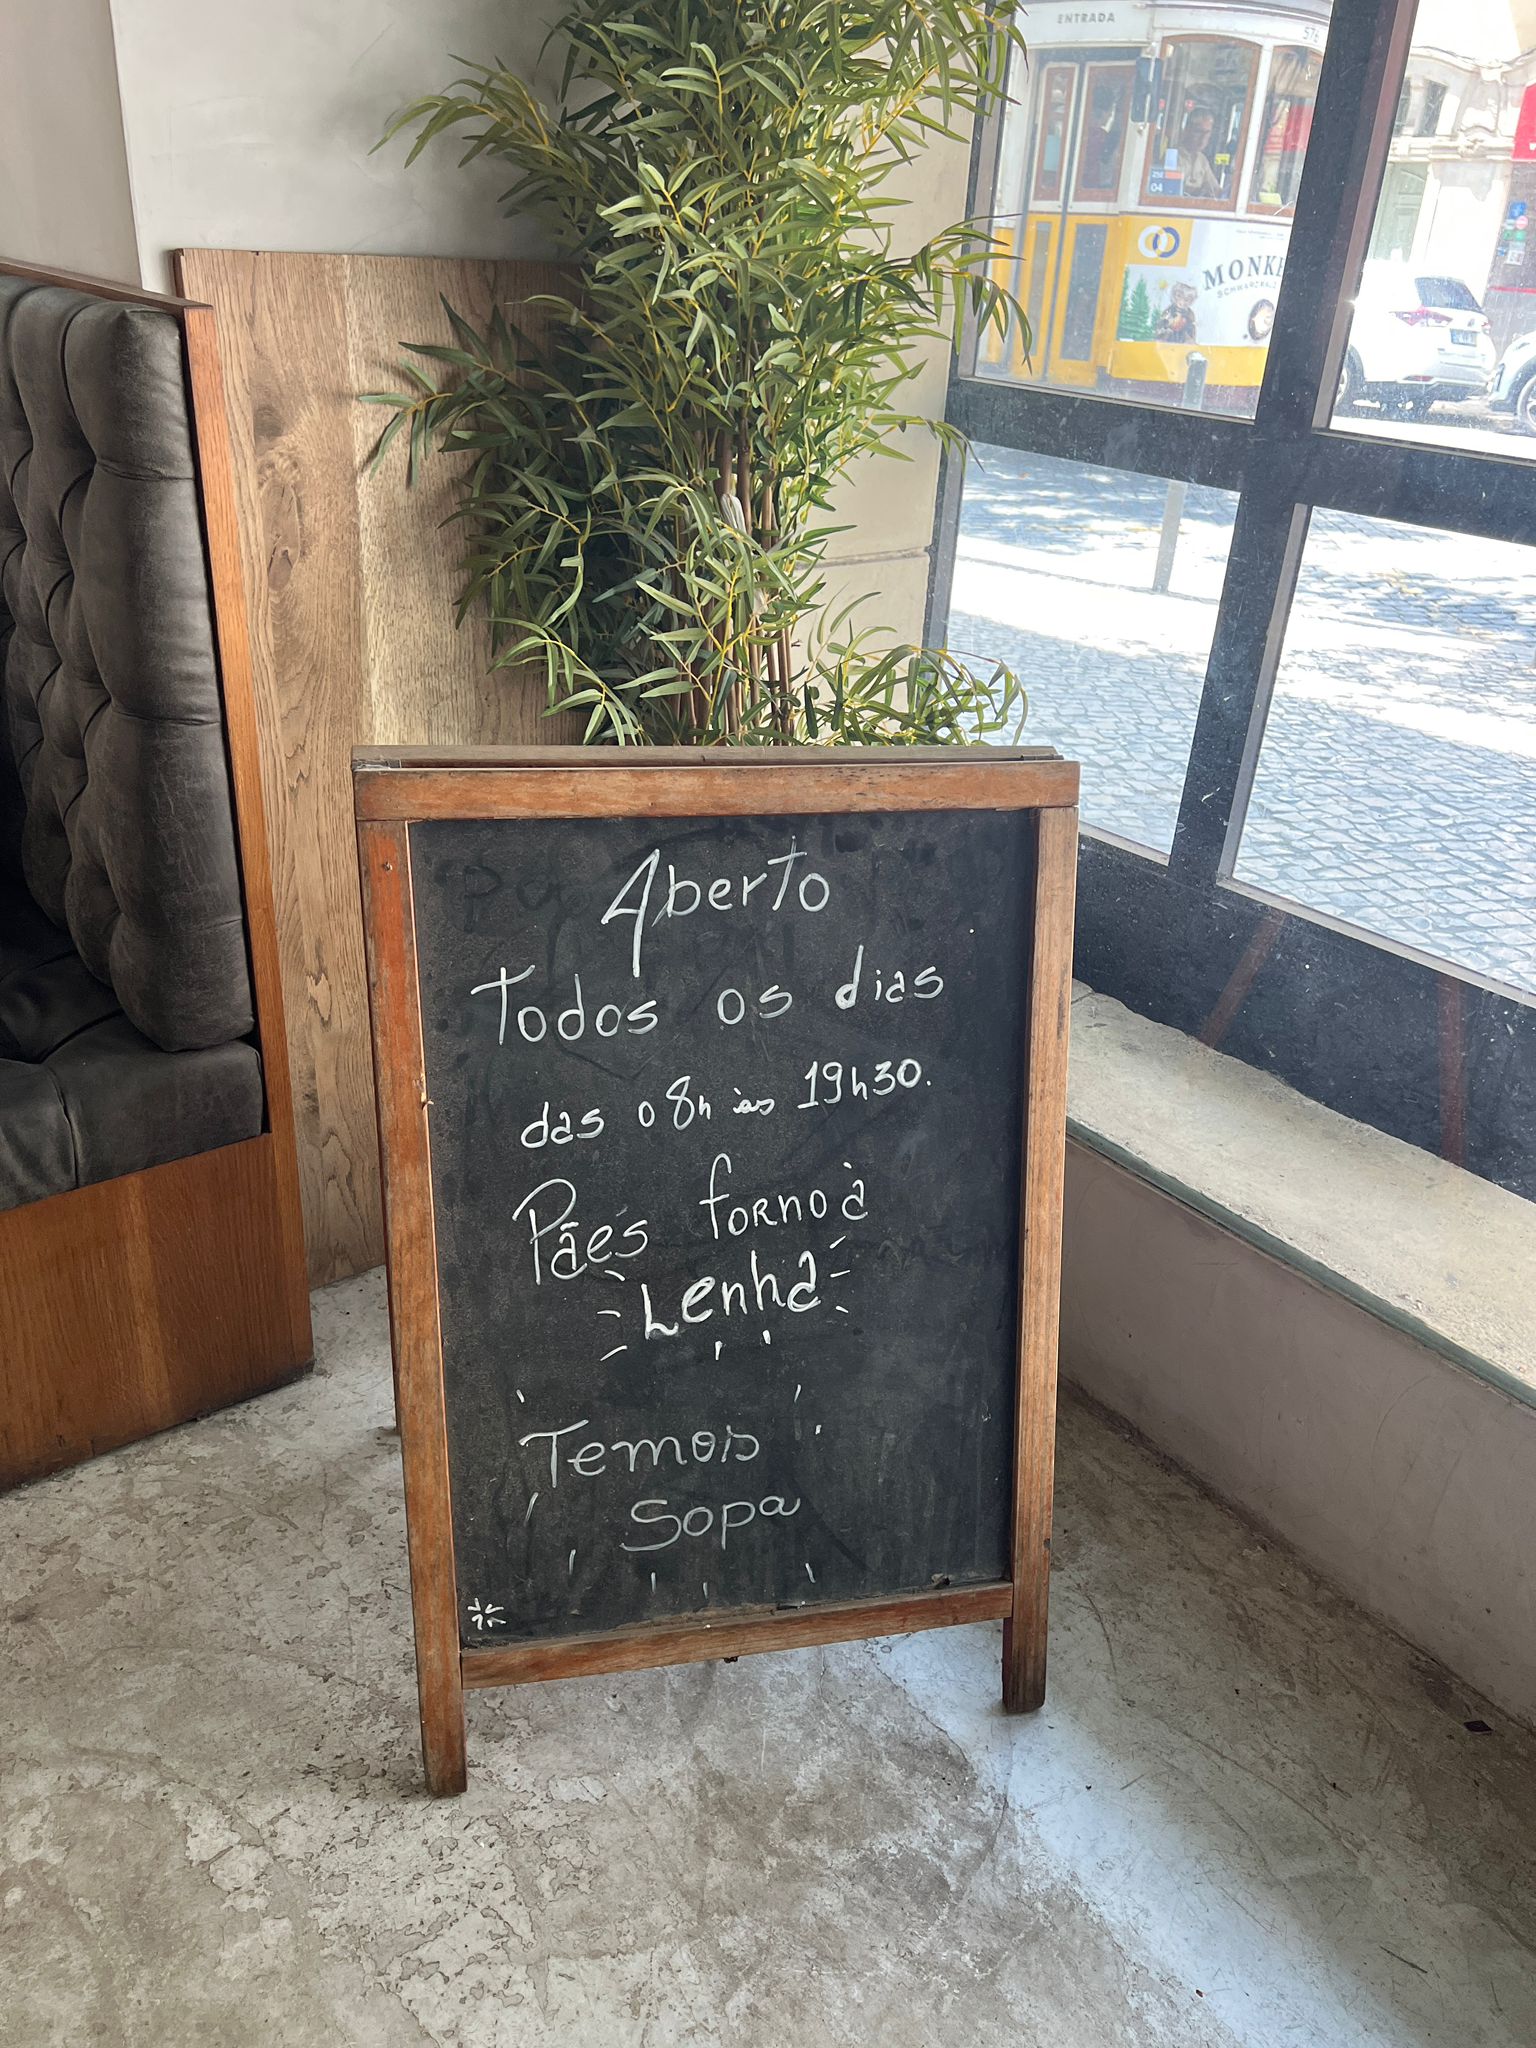 ENTRADA
576
252
04
MONK
SCHWARZWALD
Aberto
Todos os dias
das 08h às 19h30.
Pães forno à
Lenha
Temos
Sopa